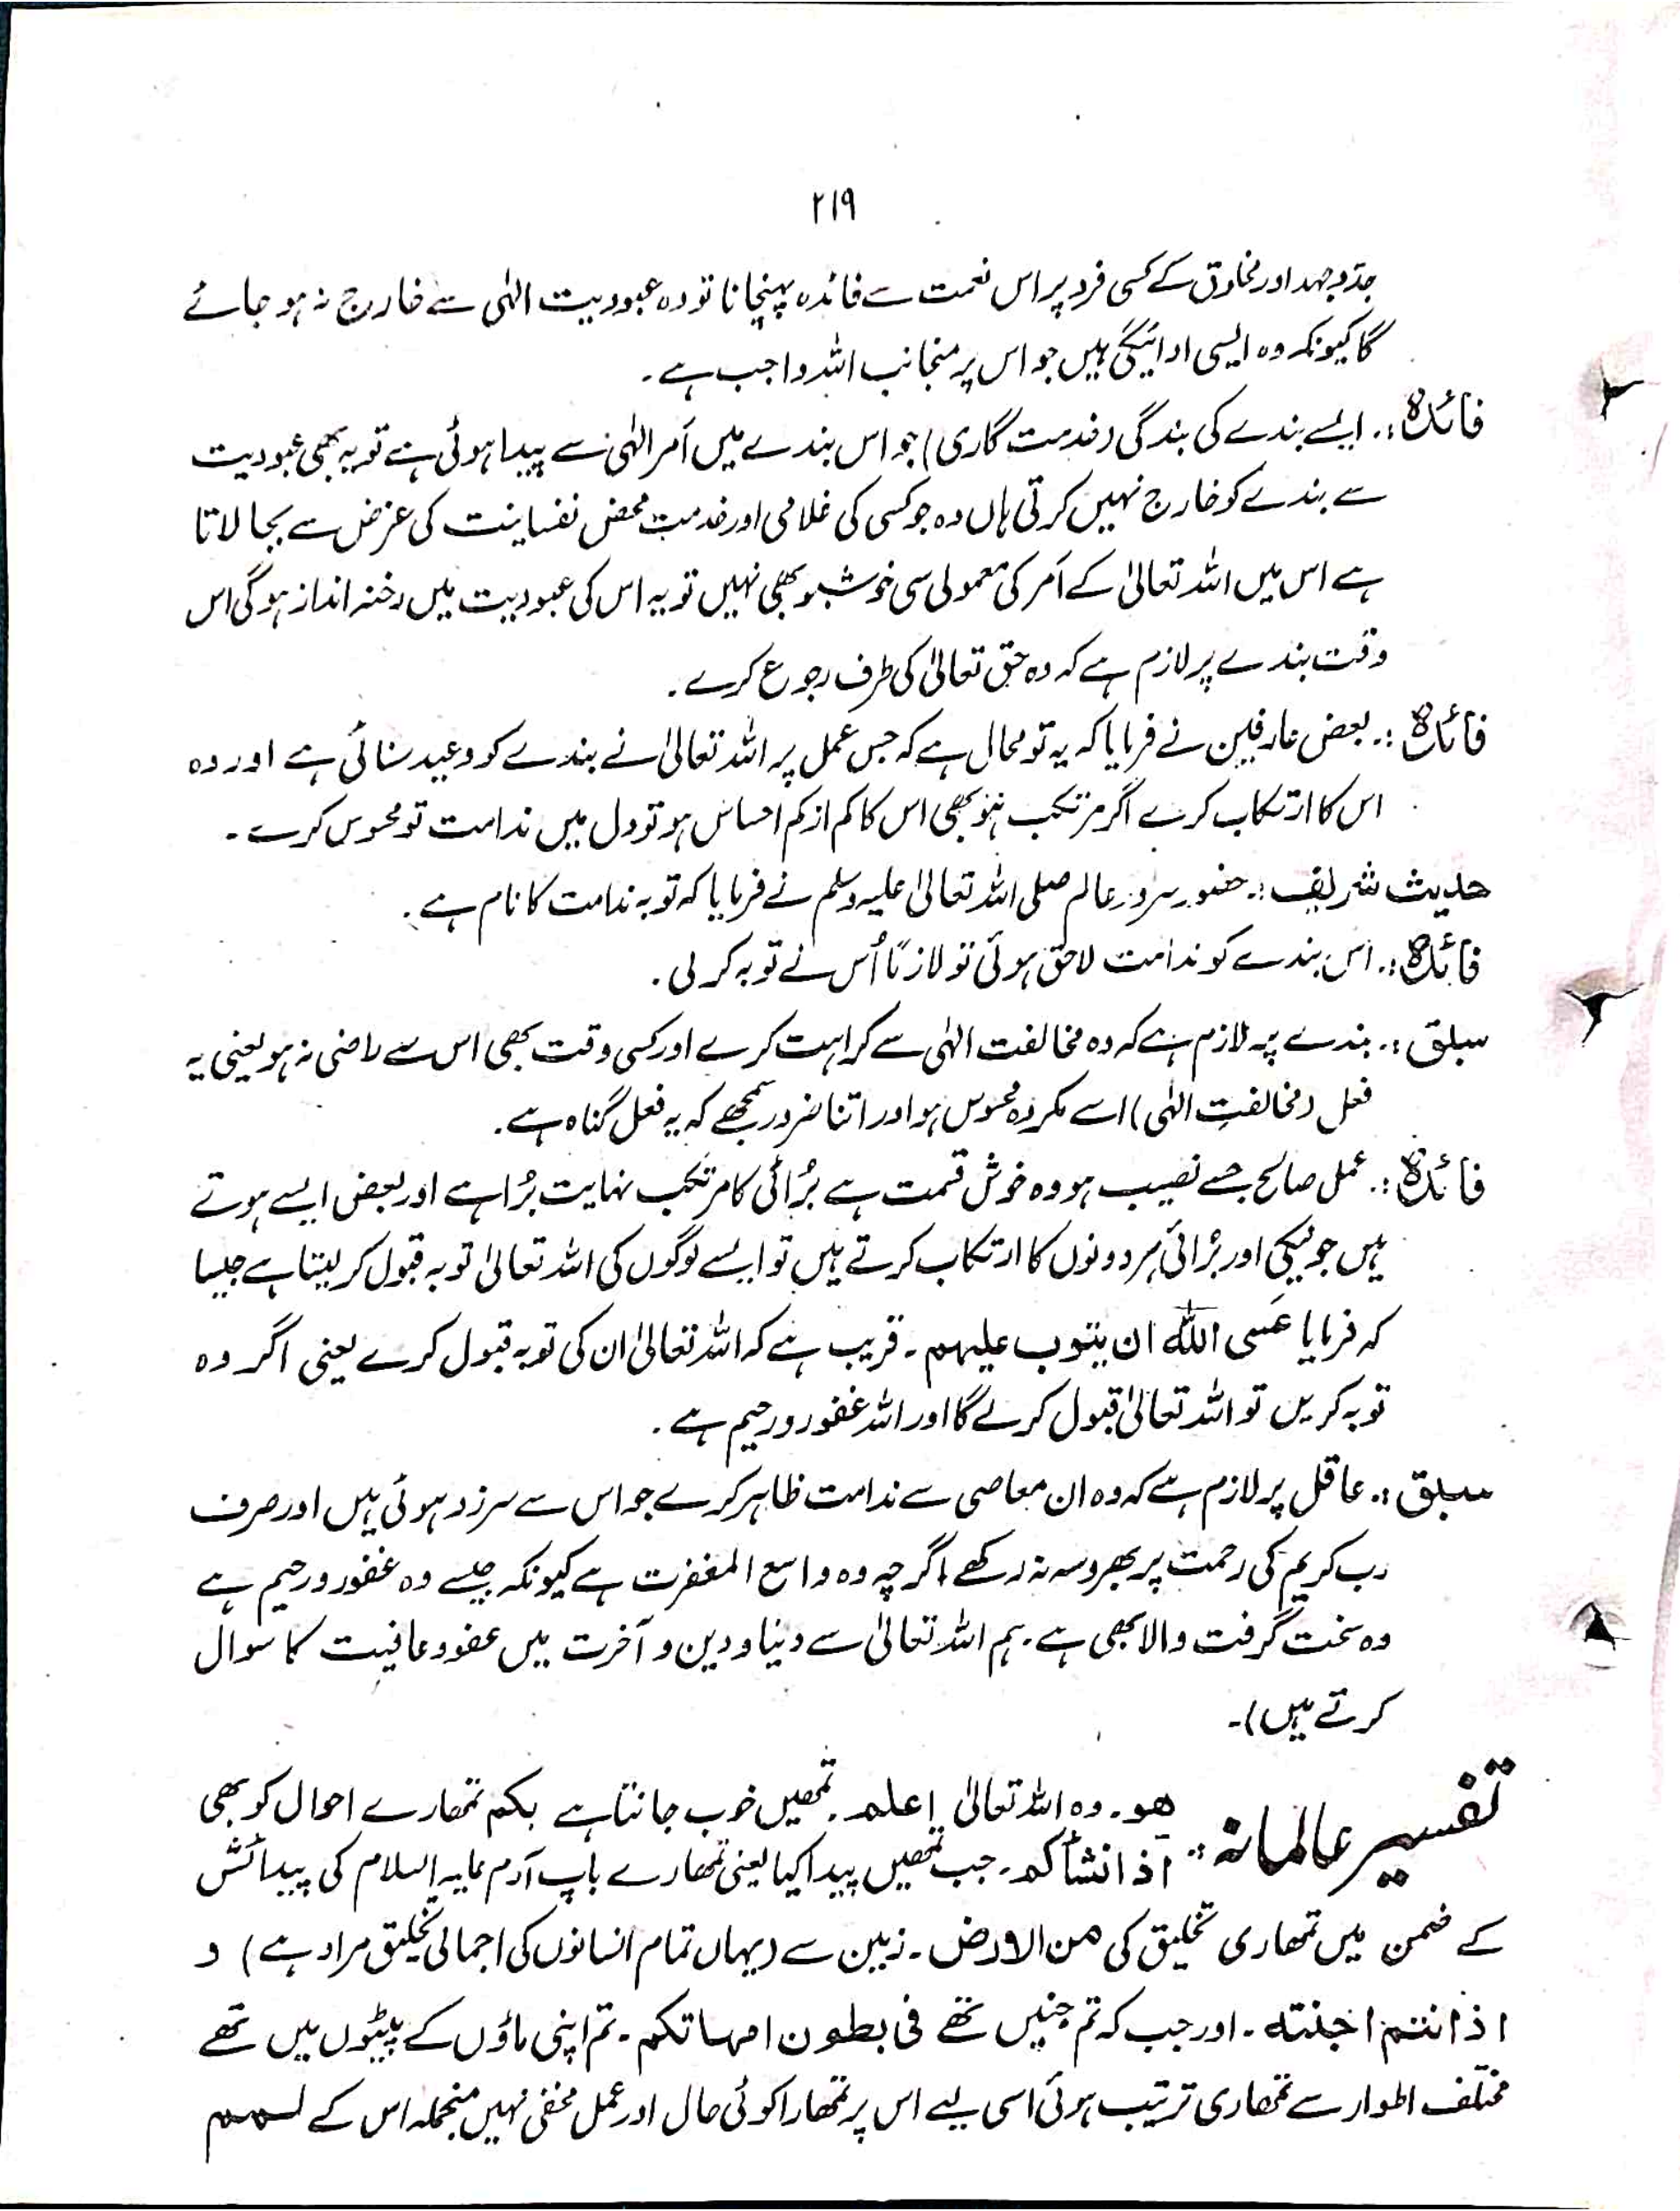 ۲۱۹
جدوجہد اور مخلوق کے کسی فرد پر اس نعمت سے فائدہ پہنچانا تو وہ عبودیت الہٰی سے خارج نہ ہو جائے
گا کیونکہ وہ ایسی ادائیگی ہیں جو اس پر منجانب اللہ واجب ہے۔
فائدہ:۔ ایسے بندے کی بندگی (خدمت گاری) جو اس بندے میں اَمر الہٰی سے پیدا ہوئی ہے تو یہ بھی عبودیت
سے بندے کو خارج نہیں کرتی ہاں وہ جو کسی کی غلامی اور خدمت محض نفسانیت کی غرض سے بجا لاتا
ہے اس میں اللہ تعالیٰ کے اَمر کی معمولی سی خوشبو بھی نہیں تو یہ اس کی عبودیت میں رخنہ انداز ہوگی اس
وقت بندے پر لازم ہے کہ وہ حق تعالیٰ کی طرف رجوع کرے۔
فائدہ:۔ بعض عارفین نے فرمایا کہ یہ تو محال ہے کہ جس عمل پر اللہ تعالیٰ نے بندے کو وعید سنائی ہے اور وہ
اس کا ارتکاب کرے اگر مرتکب ہو بھی اس کا کم از کم احساس ہو تو دل میں ندامت تو محسوس کرے۔
حدیث شریف:۔ حضور سرور عالم صلی اللہ تعالیٰ علیہ وسلم نے فرمایا کہ توبہ ندامت کا نام ہے۔
فائدہ:۔ اس بندے کو ندامت لاحق ہوئی تو لازمًا اُس نے توبہ کر لی۔
سبق:۔ بندے پہ لازم ہے کہ وہ مخالفت الہٰی سے کراہت کرے اور کسی وقت بھی اس سے راضی نہ ہو یعنی یہ
فعل (مخالفتِ الہٰی) اسے مکروہ محسوس ہو اور اتنا ضرور سمجھے کہ یہ فعل گناہ ہے۔
فائدہ:۔ عمل صالح جسے نصیب ہو وہ خوش قسمت ہے بُرائی کا مرتکب نہایت بُرا ہے اور بعض ایسے ہوتے
ہیں جو نیکی اور بُرائی ہر دونوں کا ارتکاب کرتے ہیں تو ایسے لوگوں کی اللہ تعالیٰ توبہ قبول کر لیتا ہے جیسا
کہ فرمایا عَسی اللہ ان یتوب علیہم۔ قریب ہے کہ اللہ تعالیٰ ان کی توبہ قبول کرے یعنی اگر وہ
توبہ کریں تو اللہ تعالیٰ قبول کرلے گا اور اللہ غفور و رحیم ہے۔
سبق:۔ عاقل پر لازم ہے کہ وہ ان معاصی سے ندامت ظاہر کرے جو اس سے سرزد ہوئی ہیں اور صرف
رب کریم کی رحمت پر بھروسہ نہ رکھے اگرچہ وہ واسع المغفرت ہے کیونکہ جیسے وہ غفور و رحیم ہے
وہ سخت گرفت والا بھی ہے۔ ہم اللہ تعالیٰ سے دنیا و دین و آخرت میں عفو و عافیت کا سوال
کرتے ہیں)۔
تفسیر عالمانہ:۔ ھو۔ وہ اللہ تعالیٰ اعلم۔ تمھیں خوب جانتا ہے بکم تمھارے احوال کو بھی
اذ انشأکم۔ جب تمھیں پیدا کیا یعنی تمھارے باپ آدم علیہ السلام کی پیدائش
کے ضمن میں تمھاری تخلیق کی من الارض۔ زمین سے (یہاں تمام انسانوں کی اجمالی تخلیق مراد ہے) و
اذ انتم اجنتہ۔ اور جب کہ تم جنیں تھے فی بطون امھاتکم۔ تم اپنی ماؤں کے پیٹوں میں تھے
مختلف اطوار سے تمھاری ترتیب ہوئی اسی لیے اس پر تمھارا کوئی حال اور عمل مخفی نہیں منجملہ اس کے لمم